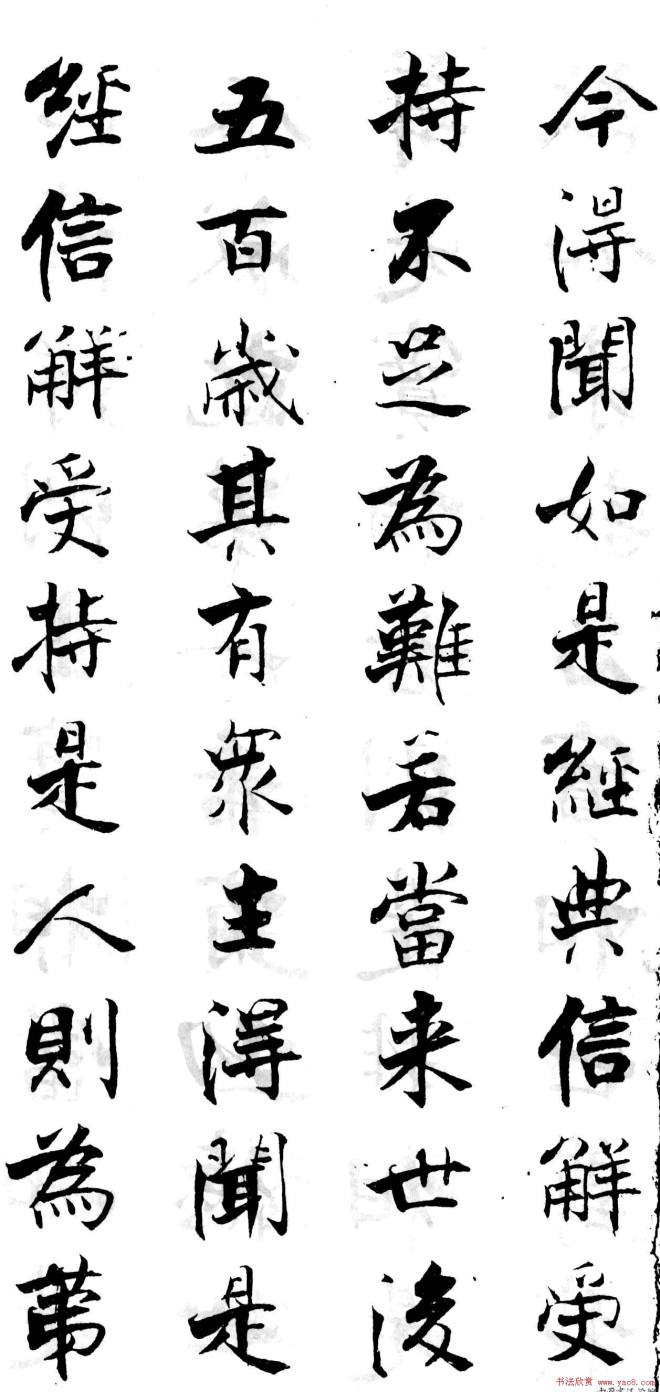 今得聞如是經典信解受
持不足為難若當来世後
五百歲其有眾生得聞是
經信解受持是人則為第
书法欣赏 www.yac8.com